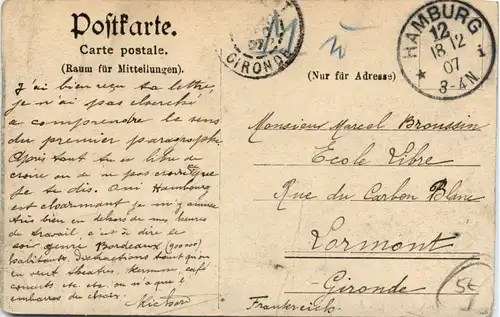 Postkarte.
Carte postale.
(Raum für Mitteilungen).
(Nur für Adresse)
HAMBURG 1
12
18 12
07
3-4N
GIRONDE
J'ai bien reçu ta lettre,
je n'ai pas cherché
à comprendre le sens
du premier paragraphe
Après tout tu es libre de
croire ou de ne pas croire que
je te dis. Oui Hambourg
est charmant je m'y amuse
très bien en dehors de mes heures
de travail, c'est à dire le
soir genre Bordeaux (900000)
habitants, distractions tout qu'on
en veut théâtre, café
concerts etc. etc. on n'a que l'
embarras du choix.
Monsieur Marcel Broussin
Ecole Libre
Rue du Carbon Blanc
Lormont
Gironde
Frankreich.